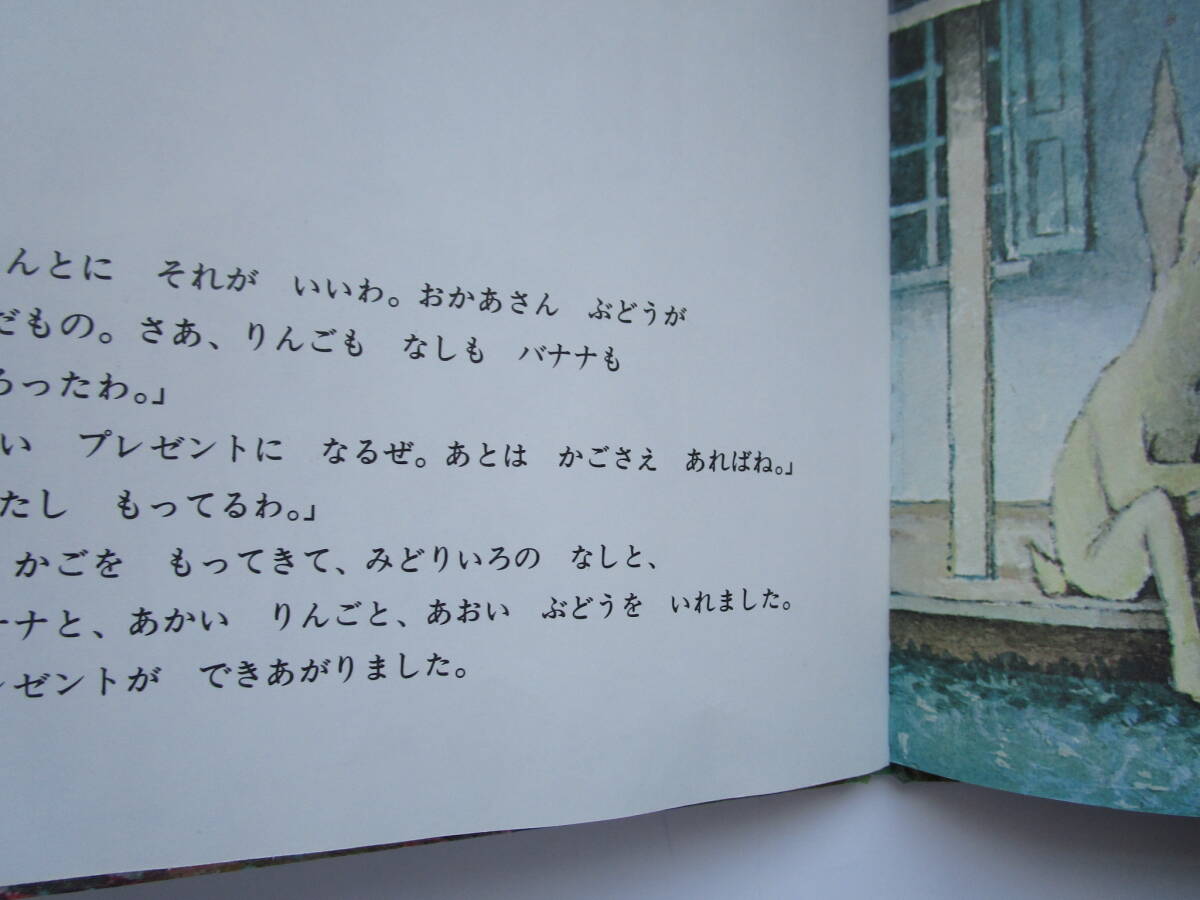 んとに　それが　いいわ。おかあさん　ぶどうが
だもの。さあ、りんごも　なしも　バナナも
ろったわ。」
い　プレゼントに　なるぜ。あとは　かごさえ　あればね。」
たし　もってるわ。」
かごを　もってきて、みどりいろの　なしと、
ナと、あかい　りんごと、あおい　ぶどうを　いれました。
ゼントが　できあがりました。